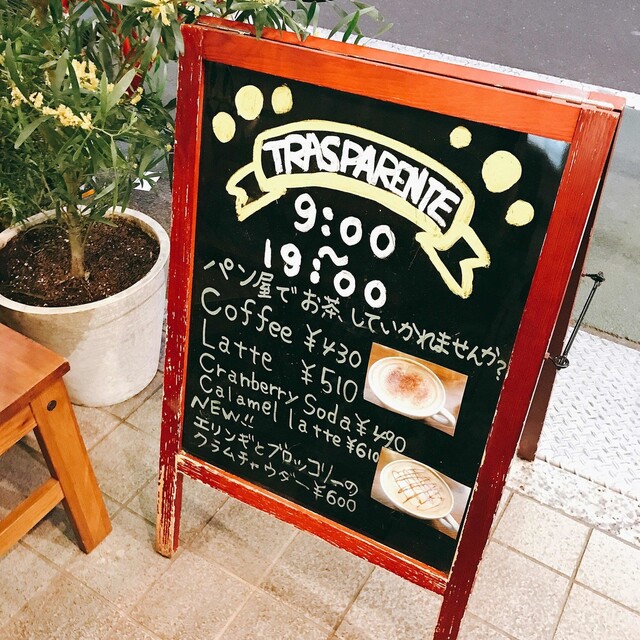 TRASPARENTE
9:00
~
19:00
パン屋でお茶、していかれませんか?
Coffee ¥430
Latte ¥510
Cranberry Soda ¥490
Calamel latte ¥610
NEW!!
エリンギとブロッコリーの
クラムチャウダー ¥600